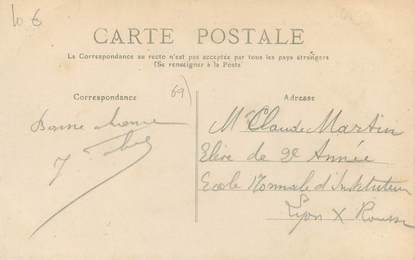 10 €
CARTE POSTALE
La Correspondance au recto n'est pas acceptée par tous les pays étrangers
(Se renseigner à la Poste)
Correspondance
69)
Adresse
Bonne chance
Mr Claude Martin
Elève de 2e Année
Ecole Normale d'Instituteurs
Lyon X Rousse